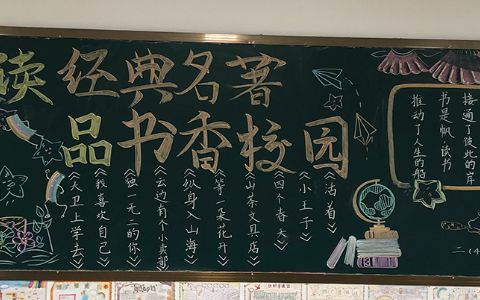 读经典名著
品书香校园
《活着》
《小王子》
《四个春天》
《山茶文具店》
《等一朵花开》
《纵身入山海》
《云边有个小卖部》
《独一无二的你》
《我喜欢自己》
《大卫上学去》
接通了彼此的岸
书是帆，读书
推动了人生的船
二（4